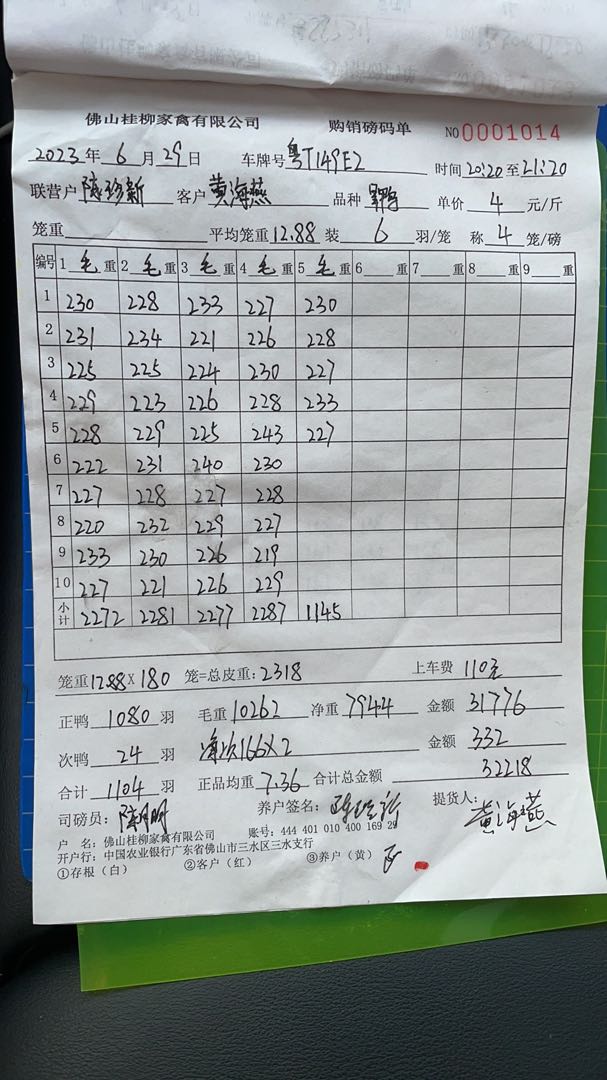 佛山桂柳家禽有限公司 购销磅码单 NO 0001014
2023年6月29日 车牌号 粤T149E2 时间 20:20 至 21:20
联营户 陈珍新 客户 黄海燕 品种 单价 4 元/斤
笼重 平均笼重 12.88 装 6 羽/笼 称 4 笼/磅
编号 1 毛 重 2 毛 重 3 毛 重 4 毛 重 5 毛 重 6 重 7 重 8 重 9 重
1 230 228 233 227 230
2 231 234 221 226 228
3 225 225 224 230 227
4 229 223 226 228 233
5 228 229 225 243 227
6 222 231 240 230
7 227 228 227 228
8 220 232 229 227
9 233 230 226 219
10 227 221 226 229
小计 2272 2281 2277 2287 1145
笼重 12.88 X 180 笼=总皮重: 2318 上车费 110元
正鸭 1080 羽 毛重 10262 净重 7944 金额 31776
次鸭 24 羽 净次166X2 金额 332
合计 1104 羽 正品均重 7.36 合计总金额 32218
司磅员: 养户签名: 提货人: 黄海燕
户 名: 佛山桂柳家禽有限公司 账号: 444 401 010 400 169 29
开户行: 中国农业银行广东省佛山市三水区三水支行
①存根（白） ②客户（红） ③养户（黄）